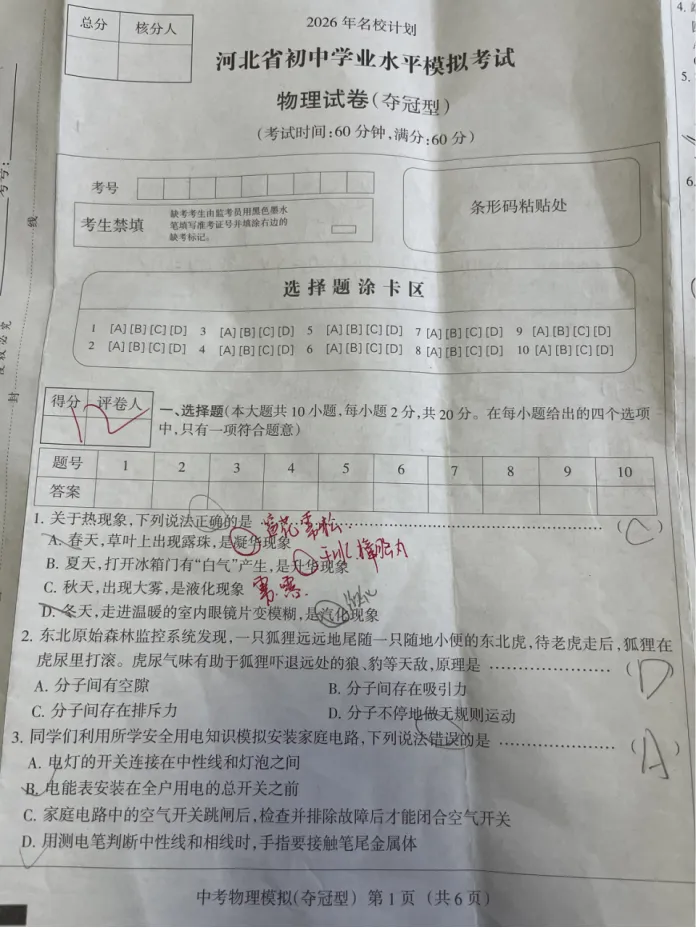 总分 核分人
2026年名校计划
河北省初中学业水平模拟考试
物理试卷(夺冠型)
(考试时间:60分钟,满分:60分)
考号
考生禁填
缺考考生由监考员用黑色墨水
笔填写准考证号并填涂右边的
缺考标记。
条形码粘贴处
选择题涂卡区
1 [A][B][C][D] 3 [A][B][C][D] 5 [A][B][C][D] 7 [A][B][C][D] 9 [A][B][C][D]
2 [A][B][C][D] 4 [A][B][C][D] 6 [A][B][C][D] 8 [A][B][C][D] 10 [A][B][C][D]
得分 评卷人
12
一、选择题(本大题共10小题,每小题2分,共20分。在每小题给出的四个选项
中,只有一项符合题意)
题号 1 2 3 4 5 6 7 8 9 10
答案
1. 关于热现象,下列说法正确的是 ……………………………………( C )
雾凇
A. 春天,草叶上出现露珠,是凝华现象
B. 夏天,打开冰箱门有“白气”产生,是升华现象
C. 秋天,出现大雾,是液化现象
D. 冬天,走进温暖的室内眼镜片变模糊,是汽化现象
2. 东北原始森林监控系统发现,一只狐狸远远地尾随一只随地小便的东北虎,待老虎走后,狐狸在
虎尿里打滚。虎尿气味有助于狐狸吓退远处的狼、豹等天敌,原理是 ………………( D )
A. 分子间有空隙 B. 分子间存在吸引力
C. 分子间存在排斥力 D. 分子不停地做无规则运动
3. 同学们利用所学安全用电知识模拟安装家庭电路,下列说法错误的是 ………………( A )
A. 电灯的开关连接在中性线和灯泡之间
B. 电能表安装在全户用电的总开关之前
C. 家庭电路中的空气开关跳闸后,检查并排除故障后才能闭合空气开关
D. 用测电笔判断中性线和相线时,手指要接触笔尾金属体
中考物理模拟(夺冠型) 第1页 (共6页)
考号:
线
封
4.
5.
6.